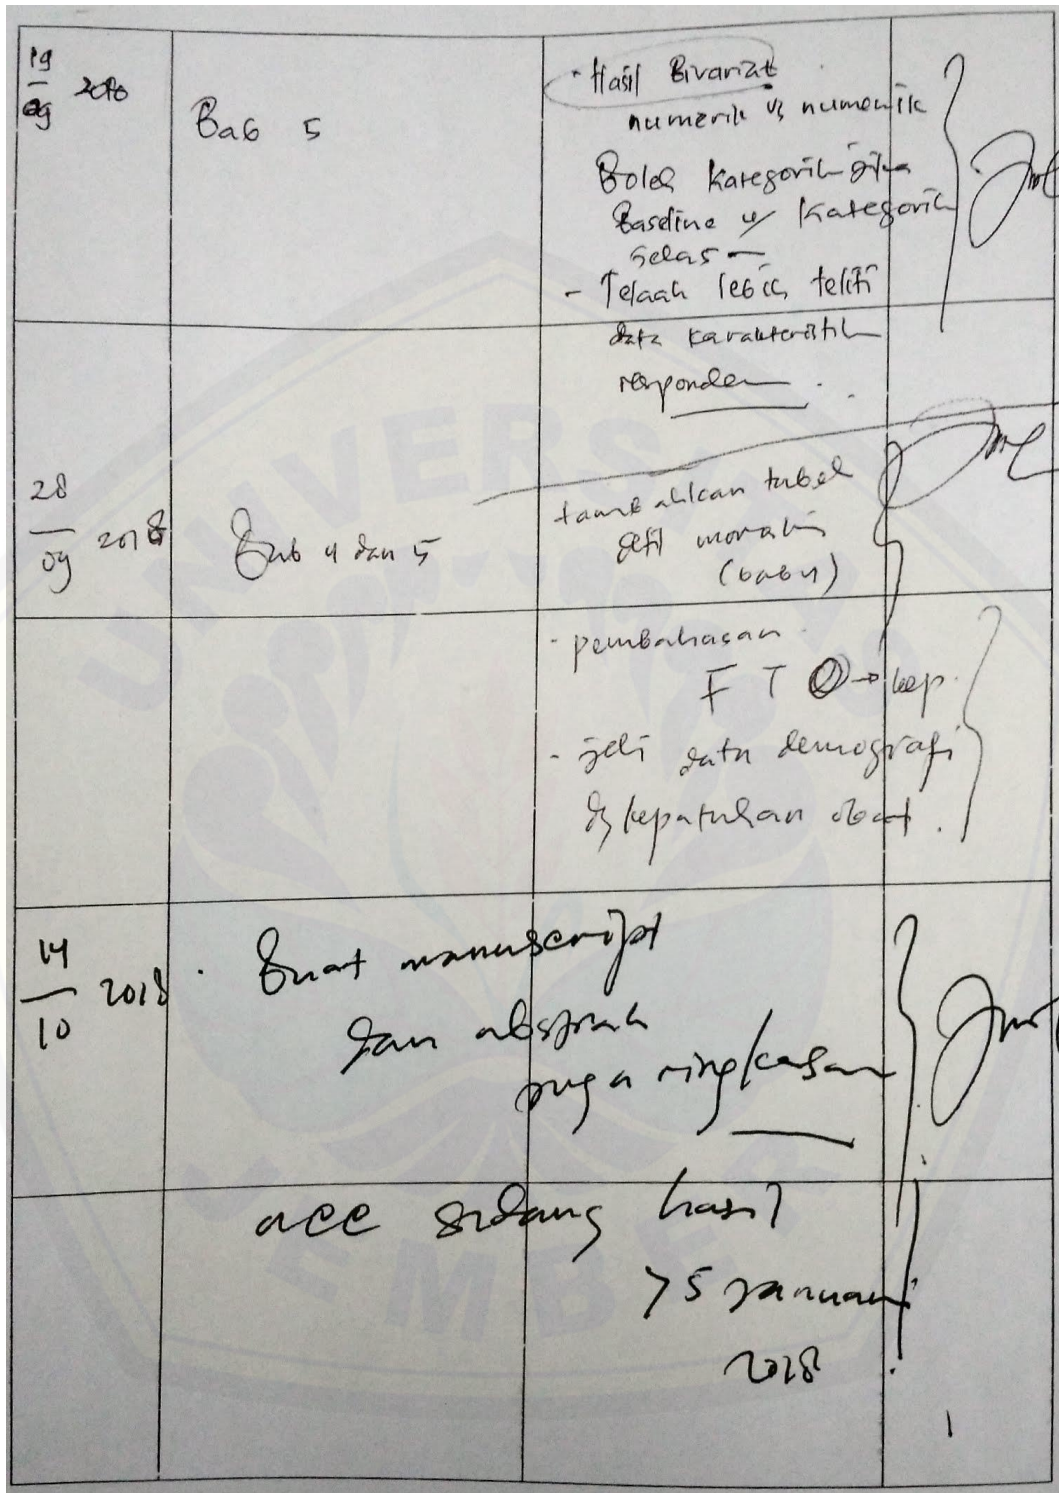 19
09 2018
Bab 5
- Hasil Bivariat
numerik vs numerik
Boleh kategorik jika
Baseline u/ kategorik
jelas
- Telaah lebih teliti
data karakteristik
responden
28
09 2018
Bab 4 dan 5
tambahkan tabel
(bab 4)
- pembahasan
F T O → kep.
- jeli data demografi
dg kepatuhan obat.
14
10 2018
Buat manuscript
dan abstrak
juga ringkasan
acc sidang hasil
75 januari
2018
UNIVERSITAS
JEMBER